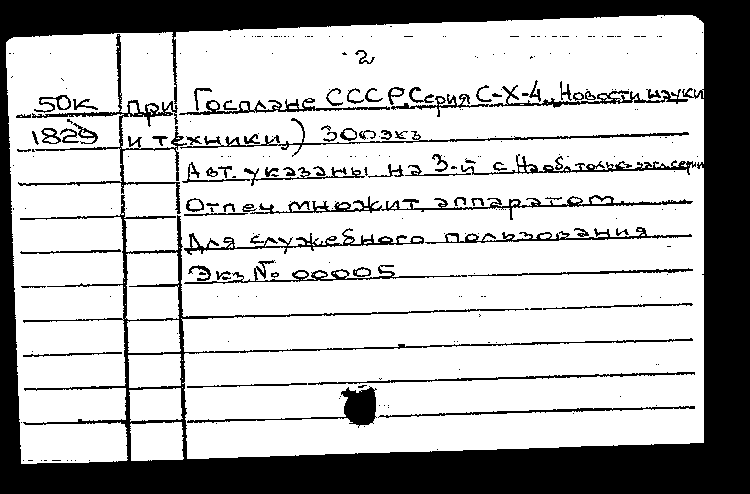 2
50к при Госплане СССР. Серия С-Х-4 „Новости науки
1829 и техники„) 300экз
Авт. указаны на 3-й с. На обл. только загл. серии
Отпеч множит. аппаратом
Для служебного пользования
Экз № 00005